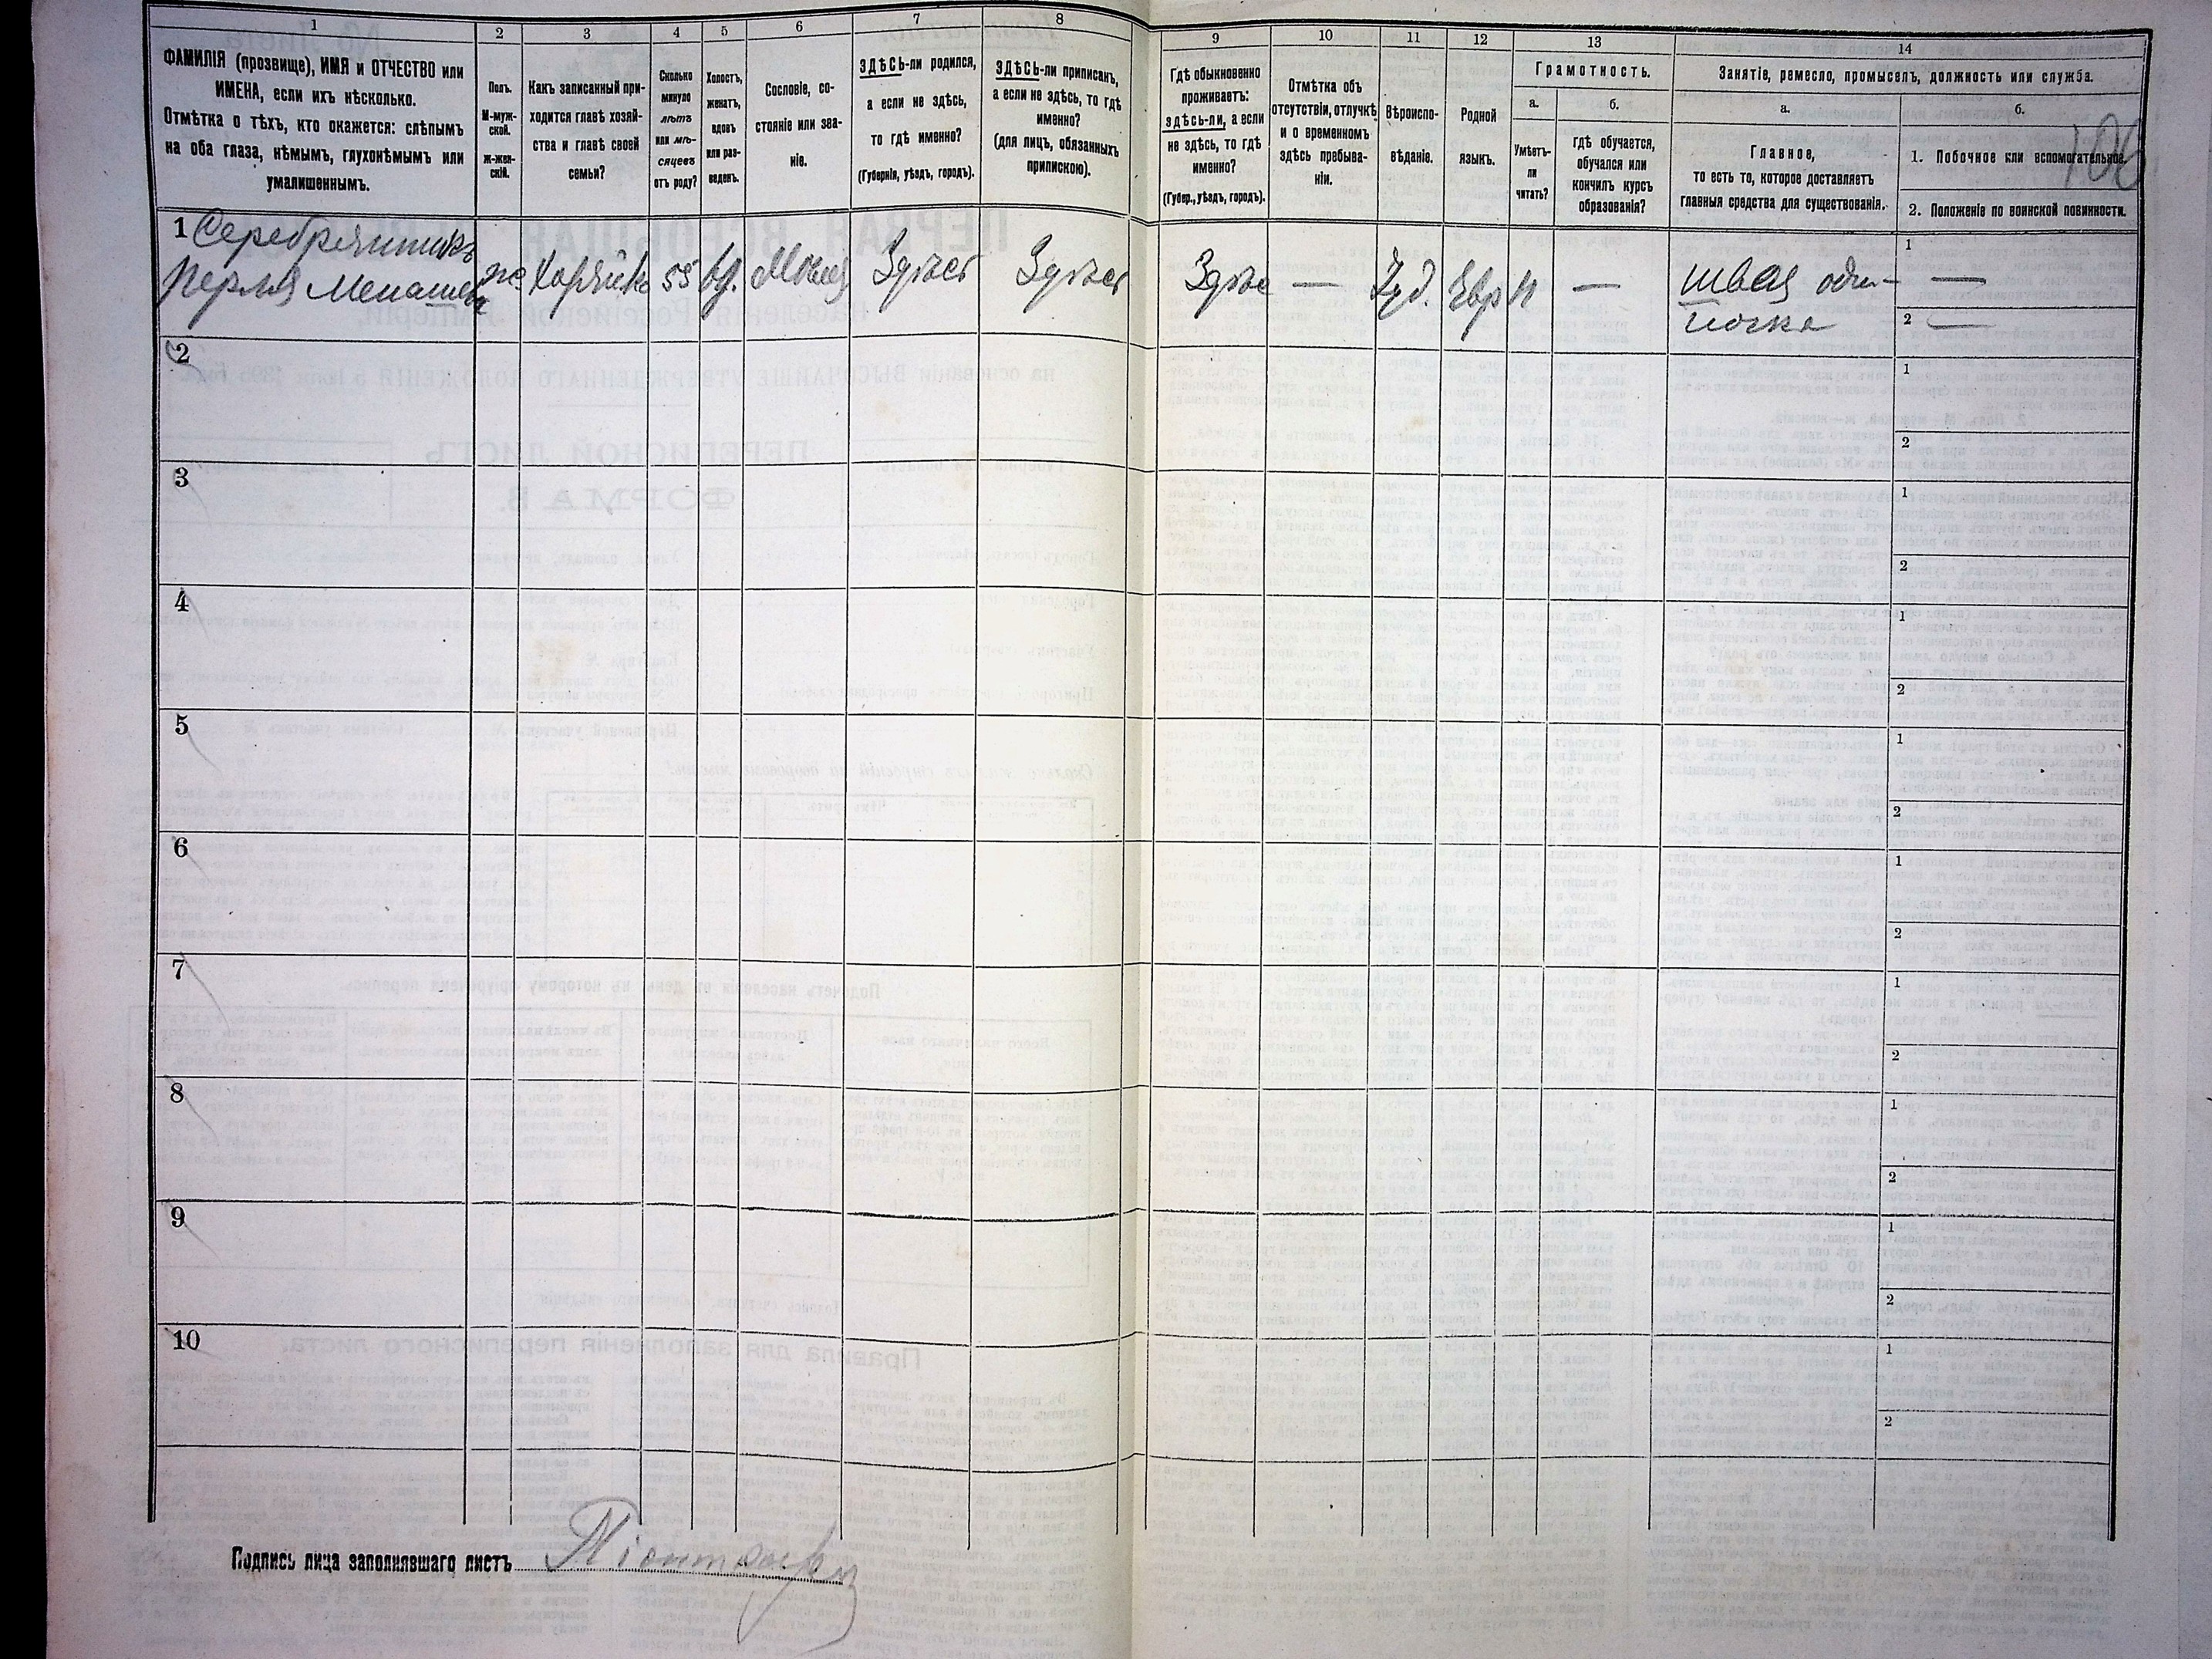 1
2
3
4
5
6
7
8
9
10
11
12
13
14
ФАМИЛІЯ (прозвище), ИМЯ и ОТЧЕСТВО или
ИМЕНА, если ихъ нѣсколько.
Отмѣтка о тѣхъ, кто окажется: слѣпымъ
на оба глаза, нѣмымъ, глухонѣмымъ или
умалишеннымъ.
Полъ.
М-муж-
ской.
Ж-жен-
скій.
Какъ записанный при-
ходится главѣ хозяй-
ства и главѣ своей
семьи?
Сколько
минуло
лѣтъ
или мѣ-
сяцевъ
отъ роду?
Холостъ,
женатъ,
вдовъ
или раз-
веденъ.
Сословіе, со-
стояніе или зва-
ніе.
ЗДѢСЬ-ли родился,
а если не здѣсь,
то гдѣ именно?
(Губернія, уѣздъ, городъ).
ЗДѢСЬ-ли приписанъ,
а если не здѣсь, то гдѣ
именно?
(для лицъ, обязанныхъ
припискою).
Гдѣ обыкновенно
проживаетъ:
здѣсь-ли, а если
не здѣсь, то гдѣ
именно?
(Губер., уѣздъ, городъ).
Отмѣтка объ
отсутствіи, отлучкѣ
и о временномъ
здѣсь пребыва-
ніи.
Вѣроиспо-
вѣданіе.
Родной
языкъ.
Грамотность.
а.
б.
Умѣетъ-
ли
читать?
гдѣ обучается,
обучался или
кончилъ курсъ
образованія?
Занятіе, ремесло, промыселъ, должность или служба.
а.
б.
Главное,
то есть то, которое доставляетъ
главныя средства для существованія.
1. Побочное или вспомогательное.
2. Положеніе по воинской повинности.
106
1 Серебрянникъ
Перля
ж 55 вд. Здѣсь Здѣсь Здѣсь — Іуд. Евр н — швея оди-
ночка
1 —
2 —
2
1
2
3
1
2
4
1
2
5
1
2
6
1
2
7
1
2
8
1
2
9
1
2
10
1
2
Подпись лица заполнявшаго листъ